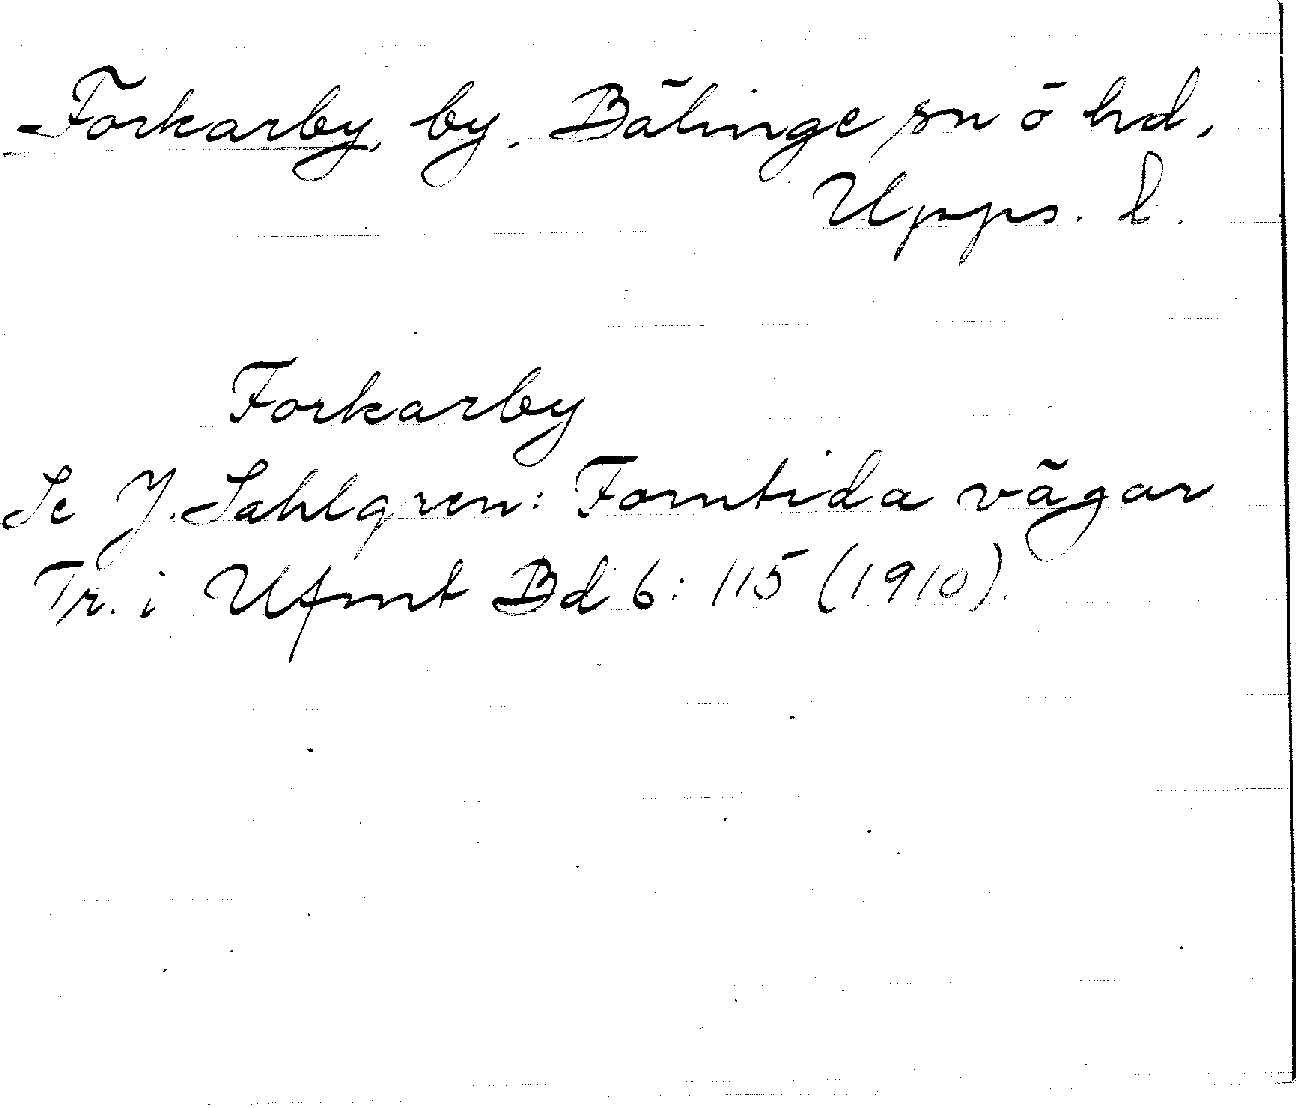 Forkarby, by. Bälinge sn o hd,
Upps. l.
Forkarby
Se J. Sahlgren: Forntida vägar
Tr. i Ufmt Bd 6: 115 (1910).